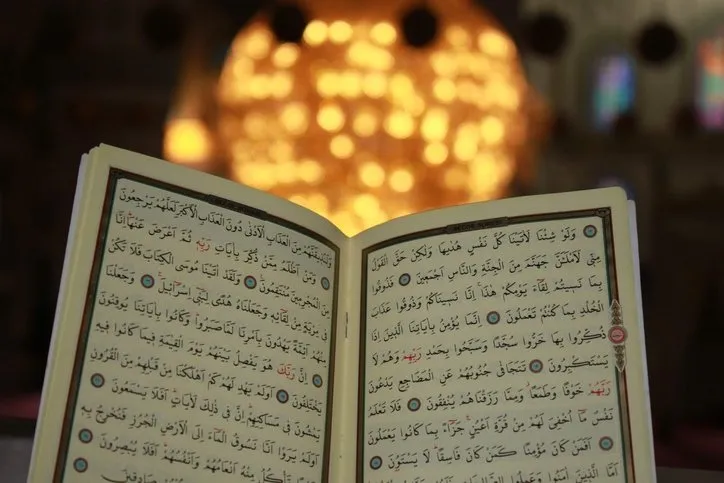 وَلَوْ شِئْنَا لَاٰتَيْنَا كُلَّ نَفْسٍ هُدٰيهَا وَلٰكِنْ حَقَّ الْقَوْلُ
مِنّ۪ي لَاَمْلَـَٔنَّ جَهَنَّمَ مِنَ الْجِنَّةِ وَالنَّاسِ اَجْمَع۪ينَ فَذُوقُوا
بِمَا نَس۪يتُمْ لِقَٓاءَ يَوْمِكُمْ هٰذَاۚ اِنَّا نَس۪ينَاكُمْ وَذُوقُوا عَذَابَ
الْخُلْدِ بِمَا كُنْتُمْ تَعْمَلُونَ اِنَّمَا يُؤْمِنُ بِاٰيَاتِنَا الَّذ۪ينَ اِذَا
ذُكِّرُوا بِهَا خَرُّوا سُجَّدًا وَسَبَّحُوا بِحَمْدِ رَبِّهِمْ وَهُمْ لَا
يَسْتَكْبِرُونَ تَتَجَافٰى جُنُوبُهُمْ عَنِ الْمَضَاجِعِ يَدْعُونَ
رَبَّهُمْ خَوْفًا وَطَمَعًاۘ وَمِمَّا رَزَقْنَاهُمْ يُنْفِقُونَ فَلَا تَعْلَمُ
نَفْسٌ مَٓا اُخْفِيَ لَهُمْ مِنْ قُرَّةِ اَعْيُنٍۚ جَزَٓاءً بِمَا كَانُوا يَعْمَلُونَ
اَفَمَنْ كَانَ مُؤْمِنًا كَمَنْ كَانَ فَاسِقًاۜ لَا يَسْتَوُ۫نَ
اَمَّا الَّذ۪ينَ اٰمَنُوا وَعَمِلُوا
وَلَنُذ۪يقَنَّهُمْ مِنَ الْعَذَابِ الْاَدْنٰى دُونَ الْعَذَابِ الْاَكْبَرِ لَعَلَّهُمْ يَرْجِعُونَ
وَمَنْ اَظْلَمُ مِمَّنْ ذُكِّرَ بِاٰيَاتِ رَبِّه۪ ثُمَّ اَعْرَضَ عَنْهَاۜ اِنَّا
مِنَ الْمُجْرِم۪ينَ مُنْتَقِمُونَ وَلَقَدْ اٰتَيْنَا مُوسَى الْكِتَابَ فَلَا تَكُنْ
ف۪ي مِرْيَةٍ مِنْ لِقَٓائِه۪ وَجَعَلْنَاهُ هُدًى لِبَن۪ٓي اِسْرَٓائ۪لَ وَجَعَلْنَا
مِنْهُمْ اَئِمَّةً يَهْدُونَ بِاَمْرِنَا لَمَّا صَبَرُوا وَكَانُوا بِاٰيَاتِنَا يُوقِنُونَ
اِنَّ رَبَّكَ هُوَ يَفْصِلُ بَيْنَهُمْ يَوْمَ الْقِيٰمَةِ ف۪يمَا كَانُوا ف۪يهِ
يَخْتَلِفُونَ اَوَلَمْ يَهْدِ لَهُمْ كَمْ اَهْلَكْنَا مِنْ قَبْلِهِمْ مِنَ الْقُرُونِ
يَمْشُونَ ف۪ي مَسَاكِنِهِمْۜ اِنَّ ف۪ي ذٰلِكَ لَاٰيَاتٍۜ اَفَلَا يَسْمَعُونَ
اَوَلَمْ يَرَوْا اَنَّا نَسُوقُ الْمَٓاءَ اِلَى الْاَرْضِ الْجُرُزِ فَنُخْرِجُ بِه۪
زَرْعًا تَأْكُلُ مِنْهُ اَنْعَامُهُمْ وَاَنْفُسُهُمْۜ اَفَلَا يُبْصِرُونَ
صَادِق۪ينَ